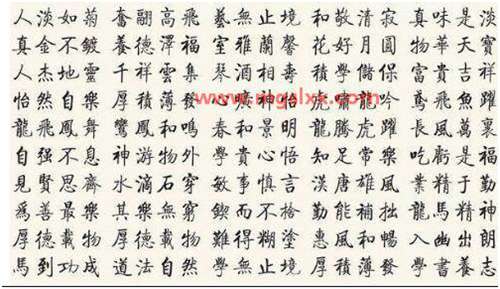 人淡如菊 奮翮高飛 藝無止境 和敬清寂 真味是淡
真金不鍍 養德澤福 室雅蘭馨 花好月圓 物華天寶
人杰地靈 千祥雲集 琴酒相壽 積學儲保 富貴吉祥
怡然自樂 厚積薄發 心曠神怡 虎嘯龍吟 鳶飛魚躍
龍飛鳳舞 鸞鳳和鳴 春和景明 龍騰虎躍 長風萬裏
自强不息 神游物外 學貴心悟 知足常樂 吃虧是福
見賢思齋 水滴石穿 敏事慎言 漢唐雄風 業精于勤
爲善最樂 其樂無窮 鍥而不捨 勤能補拙 龍馬精神
厚德載物 厚德載物 難得糊塗 惠風和暢 入幽出朗
馬到功成 道法自然 學無止境 厚積薄發 學書養志